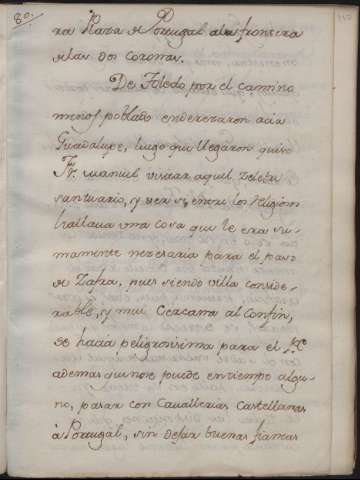 80.
ra Plaza de Portugal a la frontera
de las dos Coronas.
De Toledo por el camino
menos poblado enderezaron acia
Guadalupe, luego que llegaron quiso
Fr. Manuel visitar aquel celebre
santuario, y ver si entre los religiosos
hallava una cosa que le era su-
mamente necesaria para el paso
de Zafra, pues siendo villa conside-
rable, y mui cercana al Confin,
se hacia peligrosisima para el
ademas que no se puede en tiempo algu-
no, pasar con Cavallerias Castellanas
à Portugal, sin dejar buenas fianzas